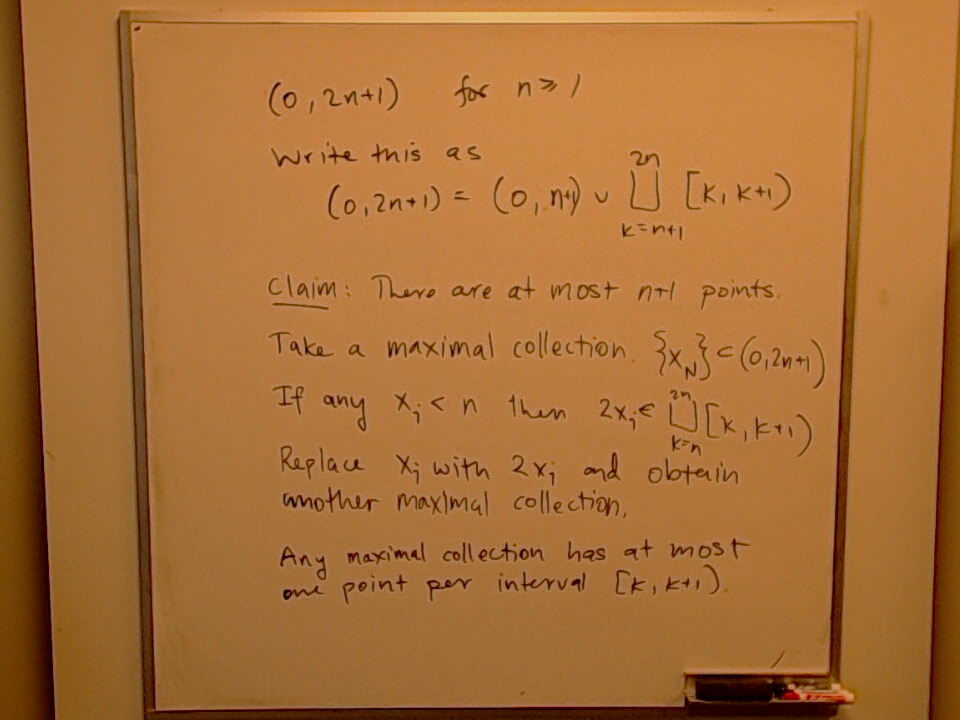 (0, 2n+1) for n ≥ 1
Write this as
(0, 2n+1) = (0, n+1) ∪ ⨆_{k=n+1}^{2n} [k, k+1)
Claim: There are at most n+1 points.
Take a maximal collection {x_N} ⊂ (0, 2n+1)
If any x_j < n then 2x_j ∈ ⨆_{k=n}^{2n} [k, k+1)
Replace x_j with 2x_j and obtain
another maximal collection.
Any maximal collection has at most
one point per interval [k, k+1).